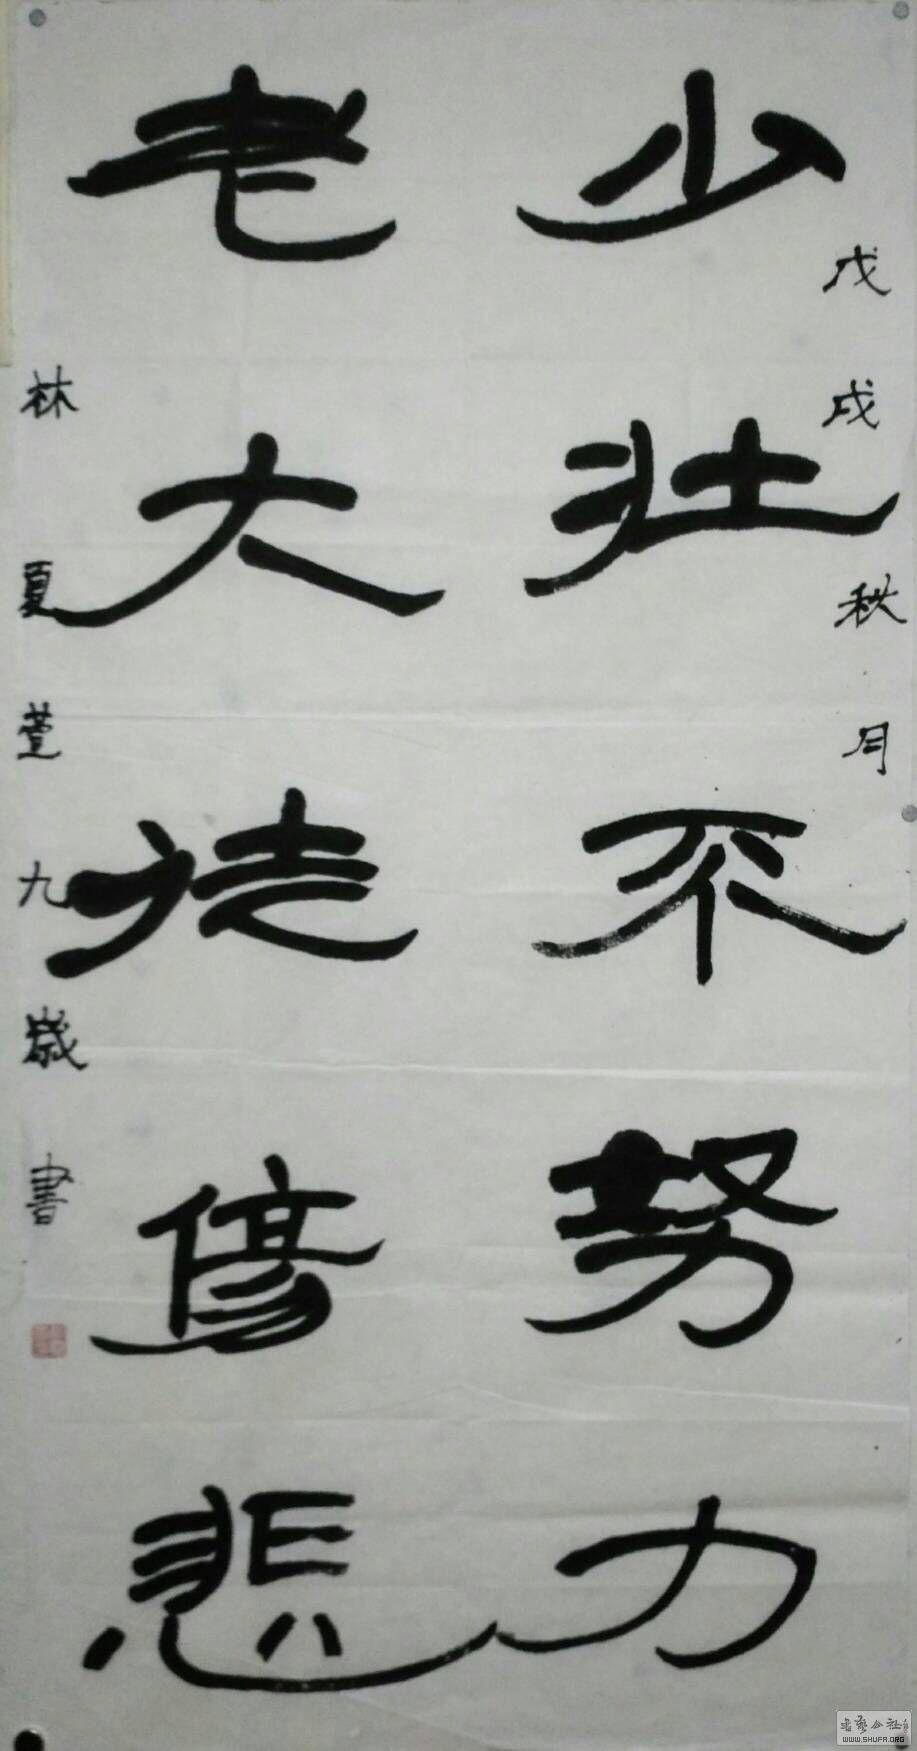 戊戌秋月
少壯不努力
老大徒傷悲
林夏萱九歲書
書藝公社
WWW.SHUFA.ORG